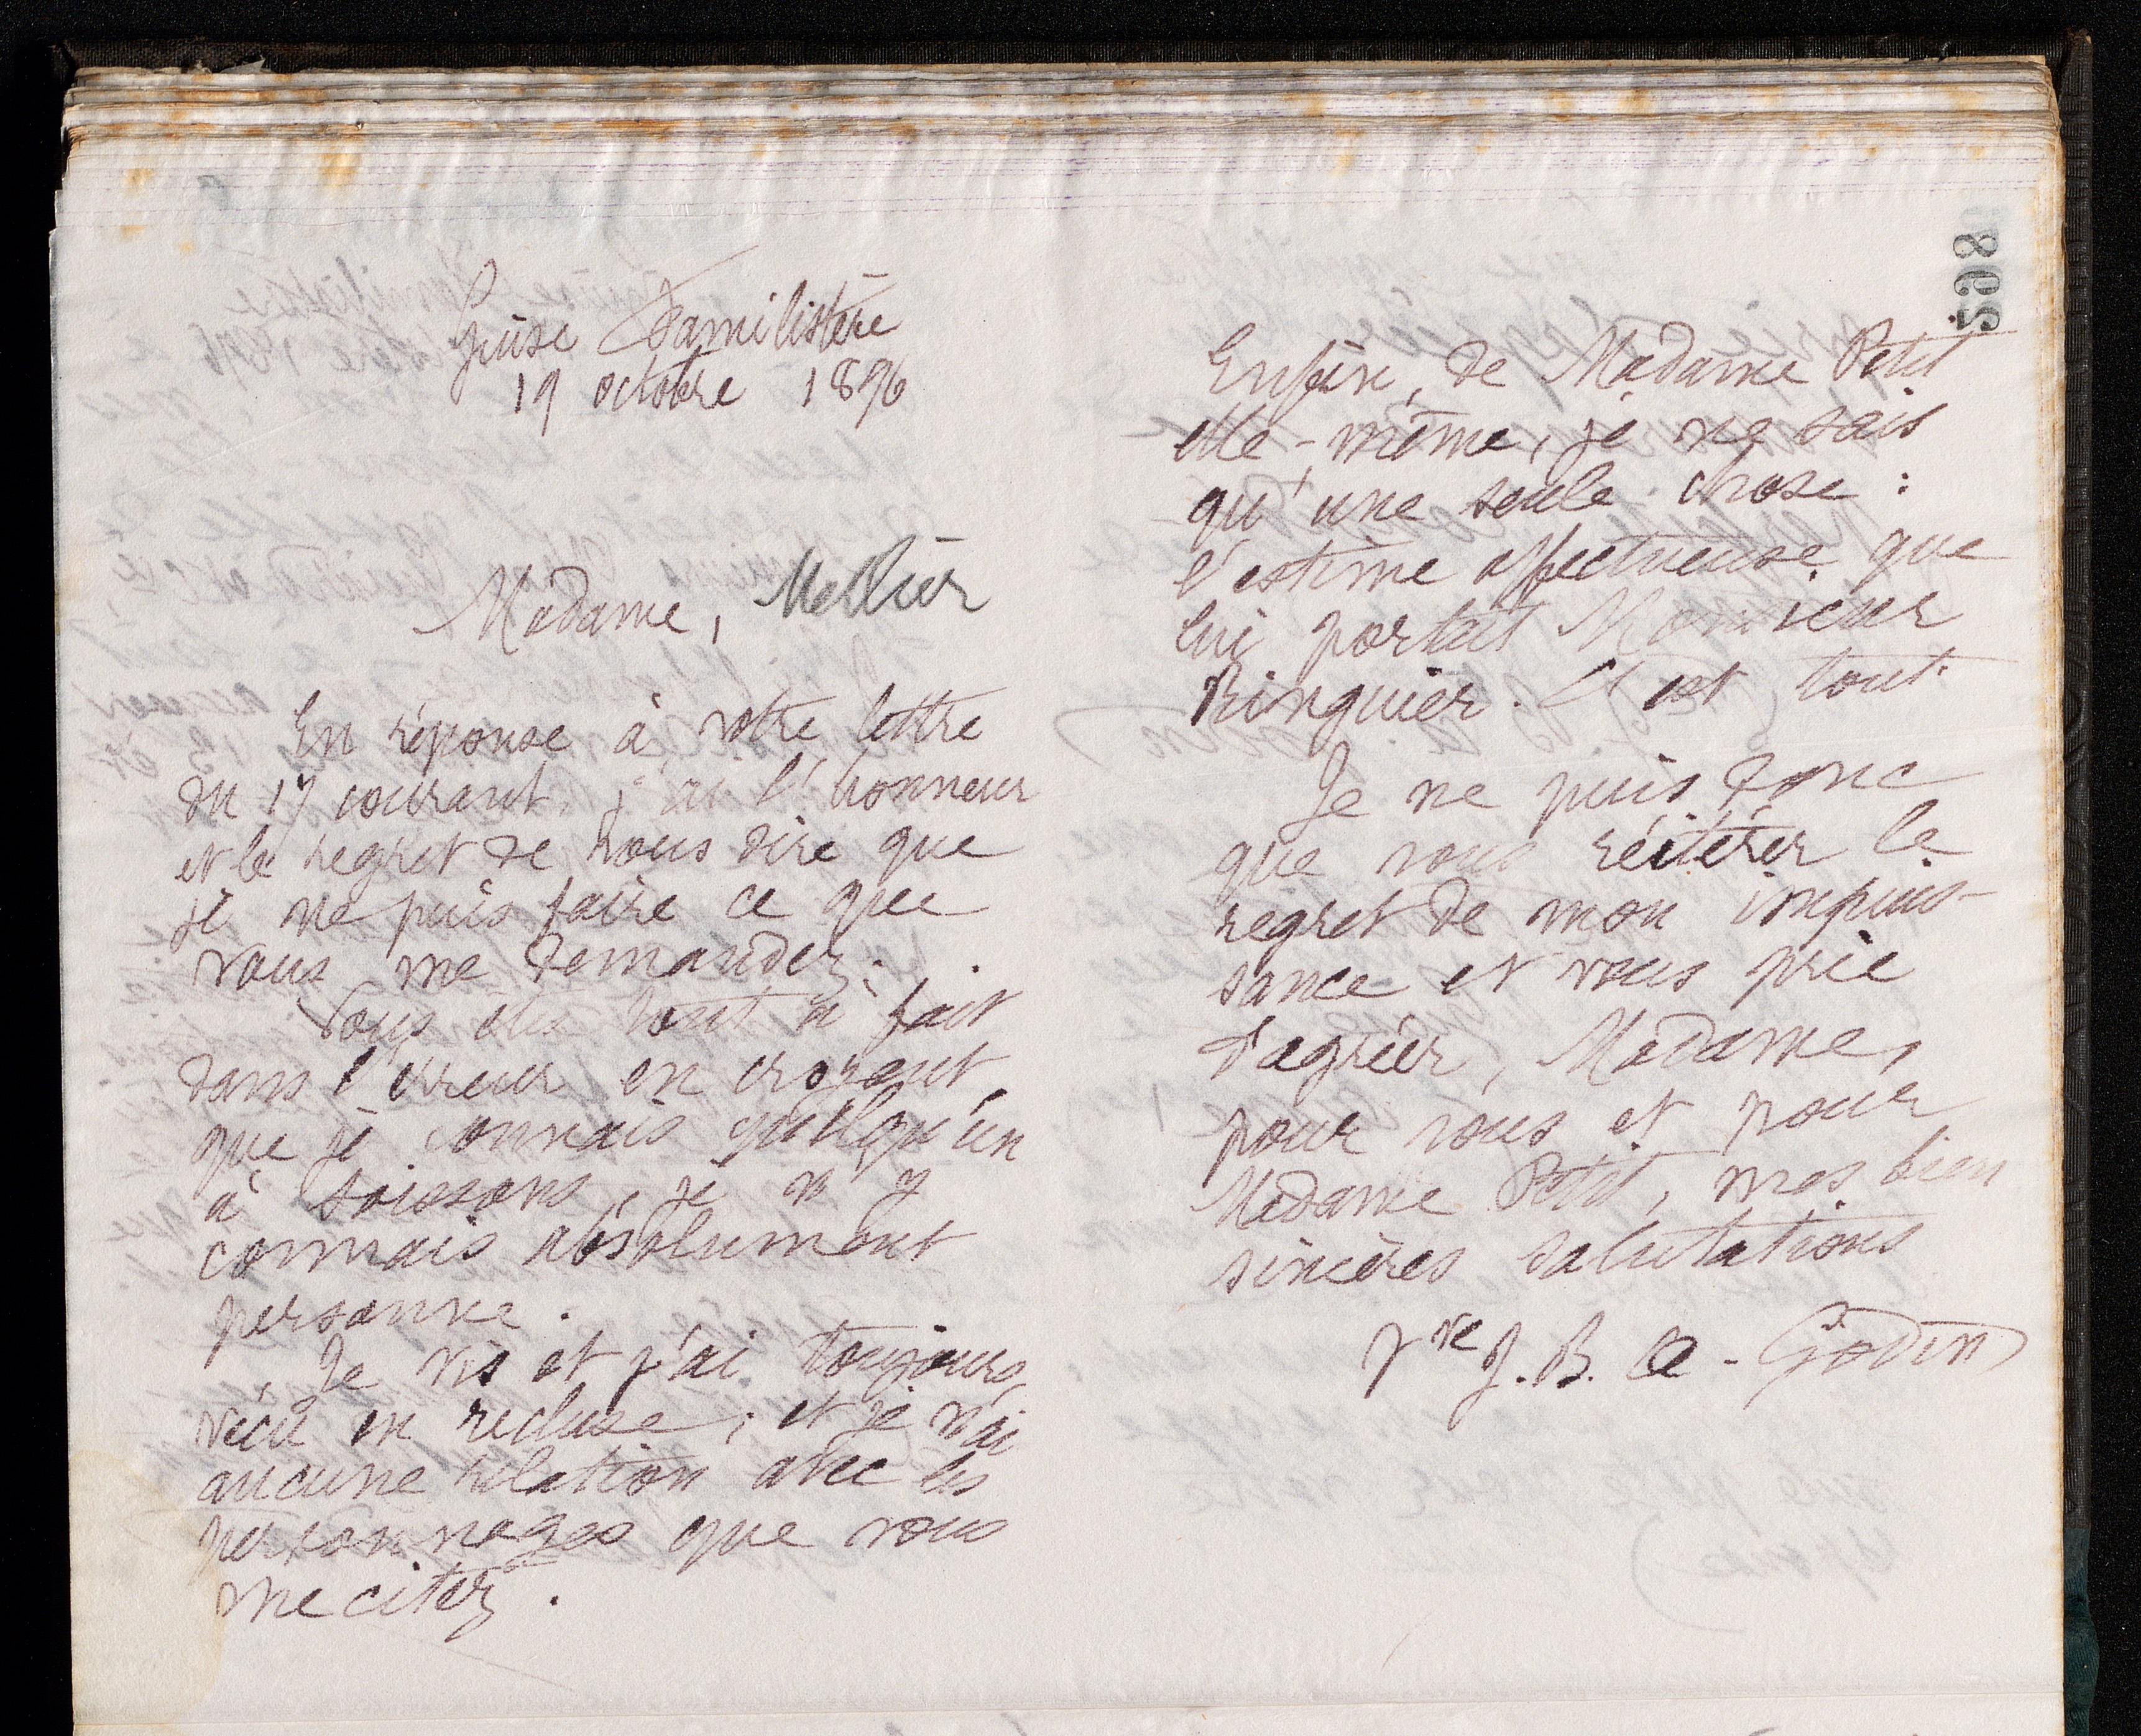 Guise Familistère
19 octobre 1896
Madame, Mellier
En réponse à votre lettre
du 17 courant, j'ai l'honneur
et le regret de vous dire que
je ne puis faire ce que
vous me demandez.
Vous êtes tout à fait
dans l'erreur en croyant
que je connais quelqu'un
à Soissons, je n'y
connais absolument
personne.
Je vis et j'ai toujours
vécu en recluse, et je n'ai
aucune relation avec les
personnages que vous
me citez.
598
Enfin, de Madame Petit
elle-même, je ne sais
qu'une seule chose :
l'estime affectueuse que
lui portait Monsieur
Ringuier. C'est tout
Je ne puis donc
que vous réitérer le
regret de mon impuis-
sance et vous prie
d'agréer, Madame,
pour vous et pour
Madame Petit, mes bien
sincères salutations
Vve J. B. A. Godin